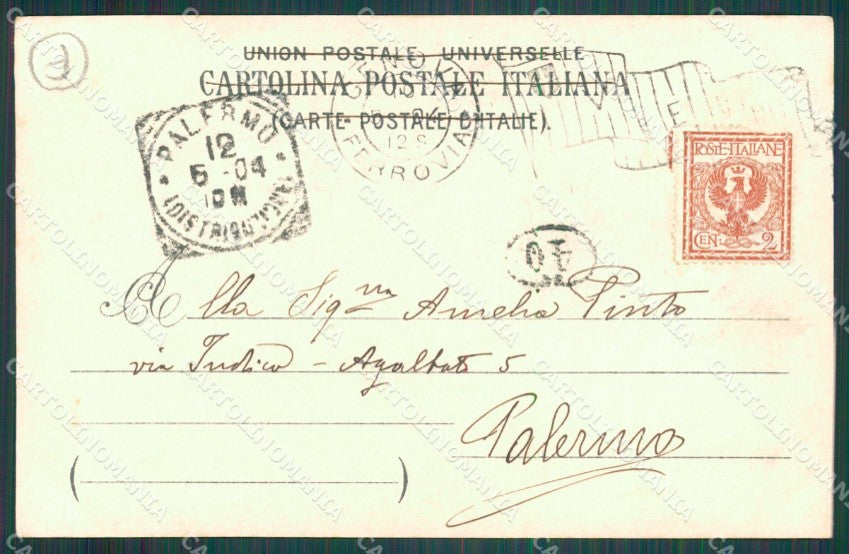 UNION POSTALE UNIVERSELLE
CARTOLINA POSTALE ITALIANA
(CARTE POSTALE D'ITALIE).
PALERMO
12
5-04
10M
(DISTRIBUZIONE)
FERROVIA
12S
POSTE·ITALIANE
CEN. 2
Alla Signa Amelia Pinto
via Indico - Agalbato 5
Palermo
( )
CARTOLINOMANIA